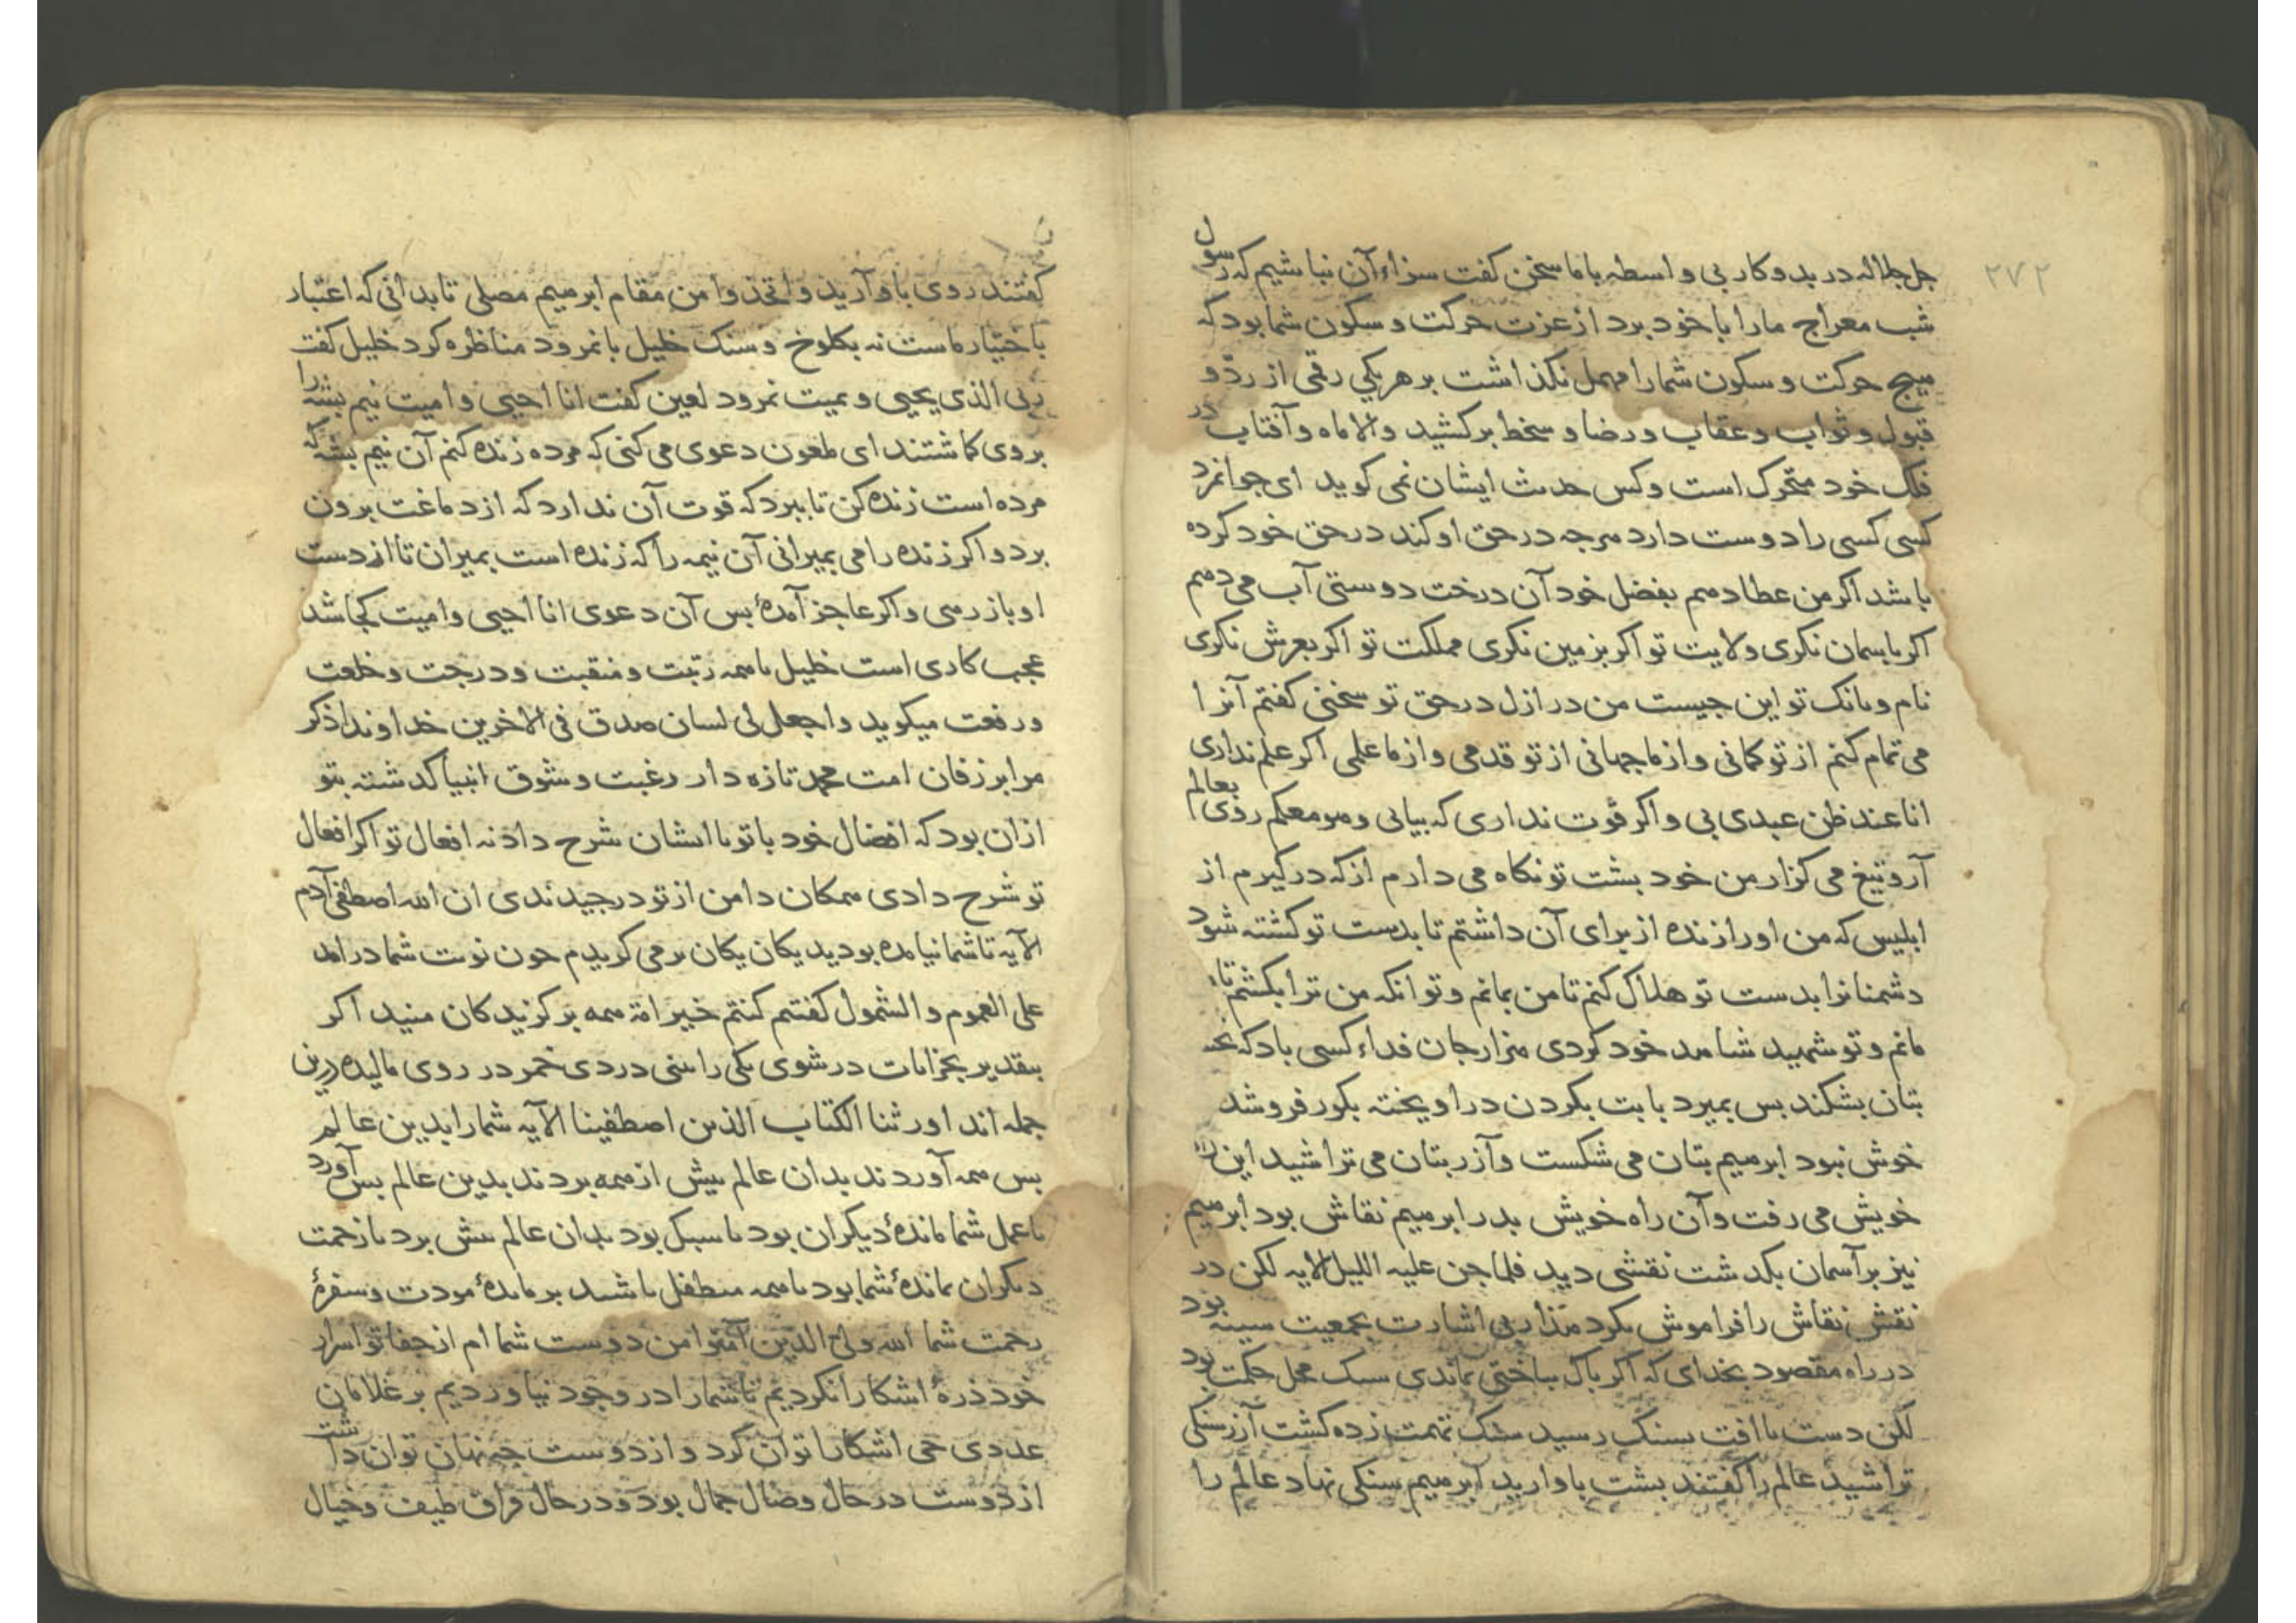 ۲۷۲
جل جلاله در بد و کار بی واسطه با ما سخن کفت سزاء آن نباشیم که رسول
شب معراج مارا با خود برد از عزت حرکت و سکون شما بود که
هیج حرکت و سکون شمارا مهمل نکذاشت بر هر یکی رقمی از ردّ و
قبول و ثواب و عقاب و رضا و سخط بر کشید والا ماه و آفتاب در
فلک خود متحرک است و کس حدیث ایشان نمی کوید ای جوانمرد
کسی کسی را دوست دارد هرجه در حق او کند در حق خود کرده
باشد اکر من عطا دهم بفضل خود آن درخت دوستی آب می دهم
اکر باسمان نکری ولایت تو اکر بزمین نکری مملکت تو اکر بعرش نکری
نام و بانک تو این جیست من در ازل در حق تو سخنی کفتم آنرا
می تمام کنم از تو کمانی و از ما جهانی از تو قدمی و از ما علمی اکر علم نداری
انا عند ظن عبدی بی و اکر قوت نداری که بیایی و هو معکم روی بعالم
آر و تیغ می کزار من خود بشت تو نکاه می دارم از که در کیرم از
ابلیس که من اورا زنده از برای آن داشتم تا بدست تو کشته شود
دشمنانرا بدست تو هلاک کنم تا من بمانم و تو انکه من ترا بکشم تا
مانم و تو شهید شاهد خود کردی هزار جان فداء کسی باد که
بتان بشکند بس بمیرد با بت بکردن در اویخته بکور فرو شد
خوش نبود ابرهیم بتان می شکست و آزر بتان می تراشید این راه
خویش می رفت و آن راه خویش بدر ابرهیم نقاش بود ابرهیم
نیز بر آسمان بکذشت نقشی دید فلما جن علیه اللیل الایه لکن در
نقش نقاش را فراموش نکرد هذا ربی اشارت بجمعیت سینه بود
در راه مقصود بخدای که اکر باک بباختی نماندی سبک محل حکمت بود
لکن دست با افت بسنک رسید سنک تهمت زده کشت آزر سنکی
تراشید عالم را کفتند بشت باو ارید ابرهیم سنکی نهاد عالم را
کفتند روی باو آرید و اتخذوا من مقام ابرهیم مصلی تا بدانی که اعتبار
باختیار ماست نه بکلوخ و سنک خلیل با نمرود مناظره کرد خلیل کفت
ربی الذی یحیی و یمیت نمرود لعین کفت انا احیی و امیت نیم بشه را
بروی کماشتند ای ملعون دعوی می کنی که مرده زنده کنم آن نیم بشه که
مرده است زنده کن تا ببرد که قوت آن ندارد که از دماغت برون
برد و اکر زنده را می بمیرانی آن نیمه را که زنده است بمیران تا از دست
او باز رهی و اکر عاجز آمدهٔ بس آن دعوی انا احیی و امیت کجا شد
عجب کاری است خلیل با همه رتبت و منقبت و درجت و خلعت
و رفعت میکوید و اجعل لی لسان صدق فی الاخرین خداوندا ذکر
مرا بر زفان امت محمد تازه دار رغبت و شوق انبیا کذشته بتو
ازان بود که افضال خود با تو با ایشان شرح داد نه افعال تو اکر افعال
تو شرح دادی همکان دامن از تو درجیدندی ان الله اصطفی آدم
الآیه تا شما نیامده بودید یکان یکان بر می کزیدم جون نوبت شما در امد
علی العموم و الشمول کفتم کنتم خیر امة همه بر کزیدکان منید اکر
بتقدیر بخرابات در شوی یکی را بینی دردی خمر در روی مالیده درین
جمله اند اورثنا الکتاب الذین اصطفینا الآیه شمارا بدین عالم
بس همه آوردند بدان عالم بیش از همه بردند بدین عالم بس آورد
تا عمل شما ماندهٔ دیکران بود تا سبک بود بدان عالم بیش برد تا زحمت
دیکران ماندهٔ شما بود تا همه متطفل باشند بر مایدهٔ مودت و سفرهٔ
رحمت شما الله ولی الذین آمنوا من دوست شما ام از جفا تو اسرار
خود ذرهٔ اشکارا نکردیم تا شمارا در وجود نیاوردیم بر غلامان
عددی می اشکارا توان کرد و از دوست جه نهان توان داشت
از دوست در حال وصال جمال بود و در حال فراق طیف و خیال